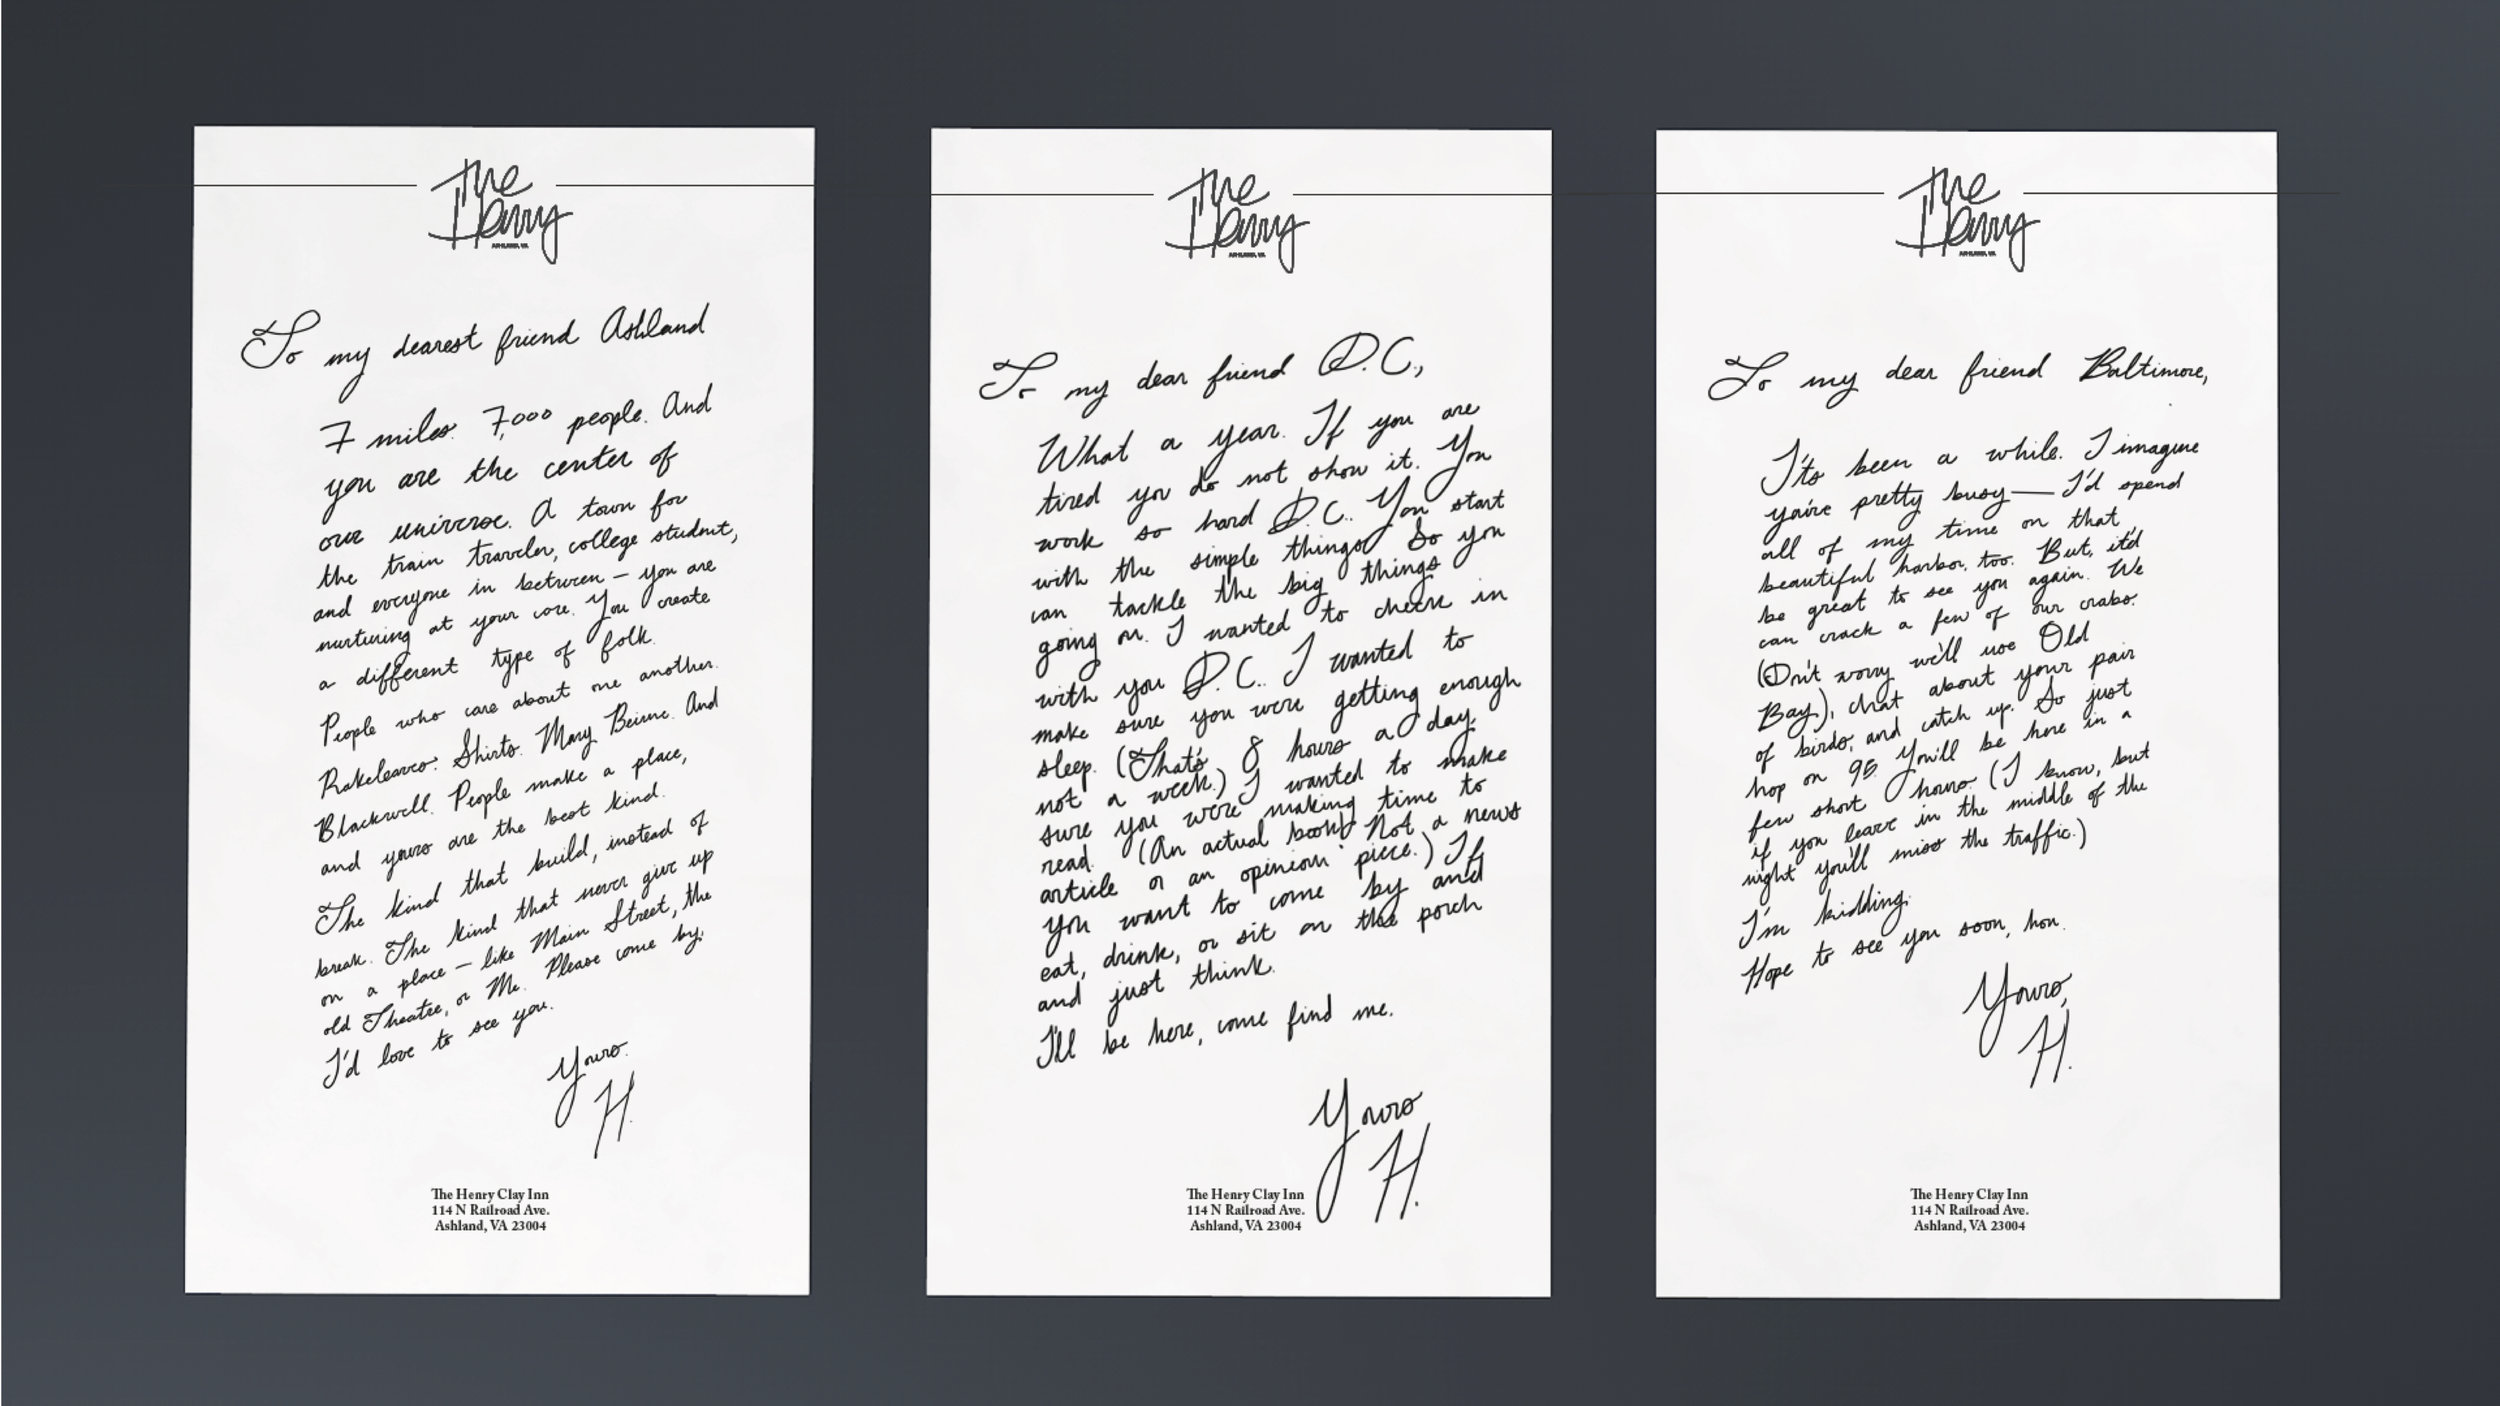 The
Henry
ASHLAND, VA
To my dearest friend Ashland
7 miles. 7,000 people. And
you are the center of
our universe. A town for
the train traveler, college student,
and everyone in between — you are
nurturing at your core. You create
a different type of folk.
People who care about one another.
Rakeleaves. Shirts. Mary Beirne. And
Blackwell. People make a place,
and yours are the best kind.
The kind that build, instead of
break. The kind that never give up
on a place — like Main Street, the
old Theatre, or Me. Please come by.
I'd love to see you.
Yours.
H.
The Henry Clay Inn
114 N Railroad Ave.
Ashland, VA 23004
The
Henry
ASHLAND, VA
To my dear friend D.C.,
What a year. If you are
tired you do not show it. You
work so hard D.C.. You start
with the simple things So you
can tackle the big things
going on. I wanted to check in
with you D.C.. I wanted to
make sure you were getting enough
sleep. (That's 8 hours a day
not a week.) I wanted to make
sure you were making time to
read. (An actual book) Not a news
article or an opinion piece.) If
you want to come by and
eat, drink, or sit on the porch
and just think.
I'll be here, come find me.
Yours
H.
The Henry Clay Inn
114 N Railroad Ave.
Ashland, VA 23004
The
Henry
ASHLAND, VA
To my dear friend Baltimore,
It's been a while. I imagine
you're pretty busy — I'd spend
all of my time on that
beautiful harbor, too. But, it'd
be great to see you again. We
can crack a few of our crabs.
(Don't worry we'll use Old
Bay), chat about your pair
of birds, and catch up. So just
hop on 95. You'll be here in a
few short hours. (I know, but
if you leave in the middle of the
night you'll miss the traffic.)
I'm kidding.
Hope to see you soon, hon.
Yours,
H.
The Henry Clay Inn
114 N Railroad Ave.
Ashland, VA 23004